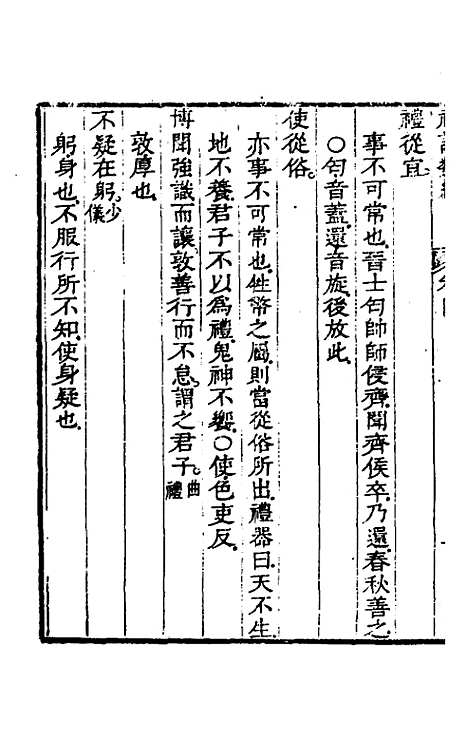 禮從宜
事不可常也晉士匄帥師侵齊聞齊侯卒乃還春秋善之
○匄音蓋還音旋後放此
使從俗
亦事不可常也牲幣之屬則當從俗所出禮器曰天不生
地不養君子不以爲禮鬼神不饗○使色吏反
博聞強識而讓敦善行而不怠謂之君子曲禮
敦厚也
不疑在躬少儀
躬身也不服行所不知使身疑也